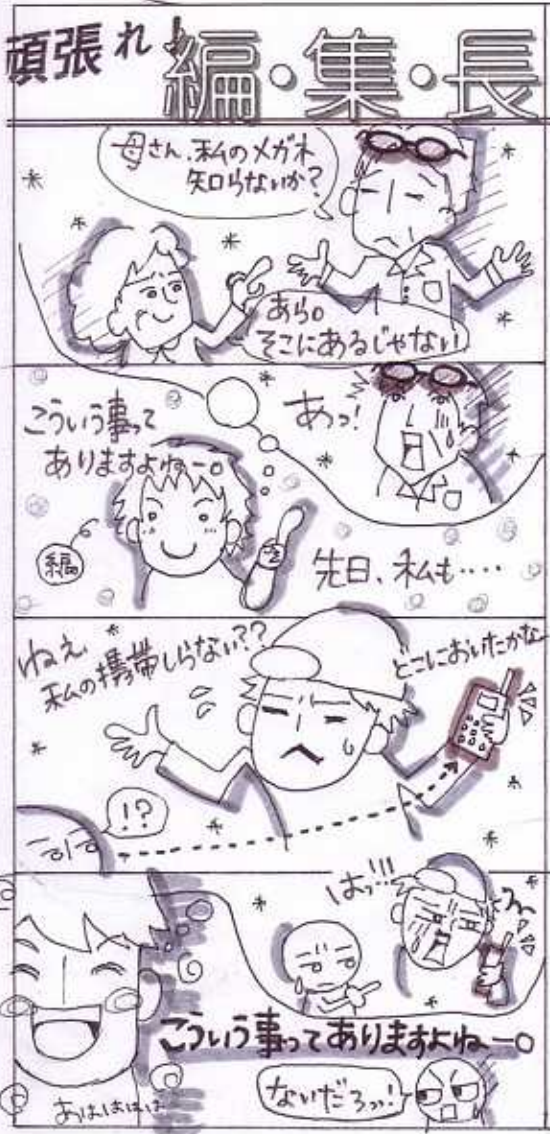 頑張れ！
編・集・長
母さん、私のメガネ
知らないか？
あら。
そこにあるじゃない
こういう事って
ありますよねー。
あっ！
編
先日、私も‥‥
ねぇ
私の携帯しらない??
どこにおいたかな
!?
はっ!!!
こういう事ってありますよねー。
ないだろっ!
あははははは